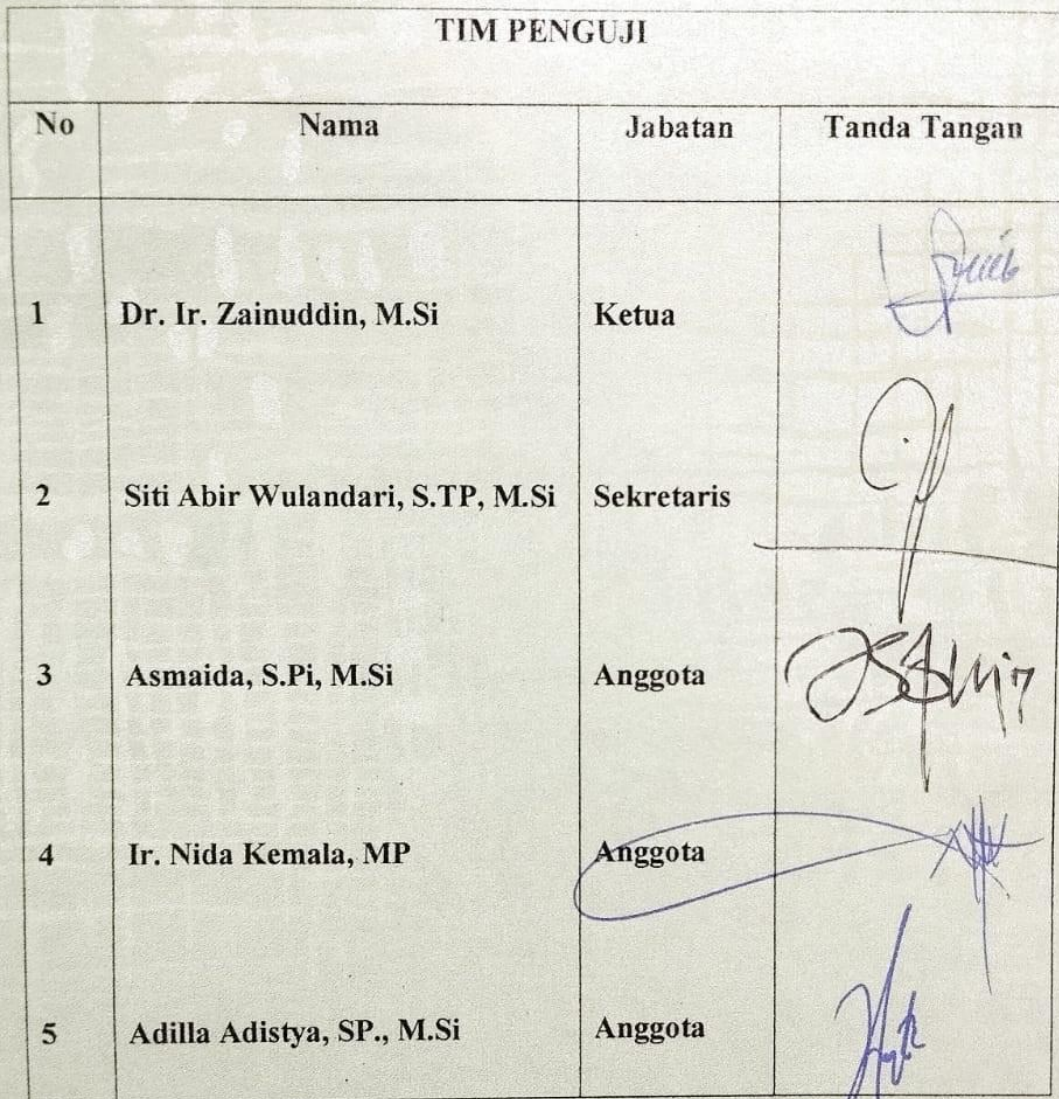 TIM PENGUJI
No Nama Jabatan Tanda Tangan
1 Dr. Ir. Zainuddin, M.Si Ketua
2 Siti Abir Wulandari, S.TP, M.Si Sekretaris
3 Asmaida, S.Pi, M.Si Anggota
4 Ir. Nida Kemala, MP Anggota
5 Adilla Adistya, SP., M.Si Anggota